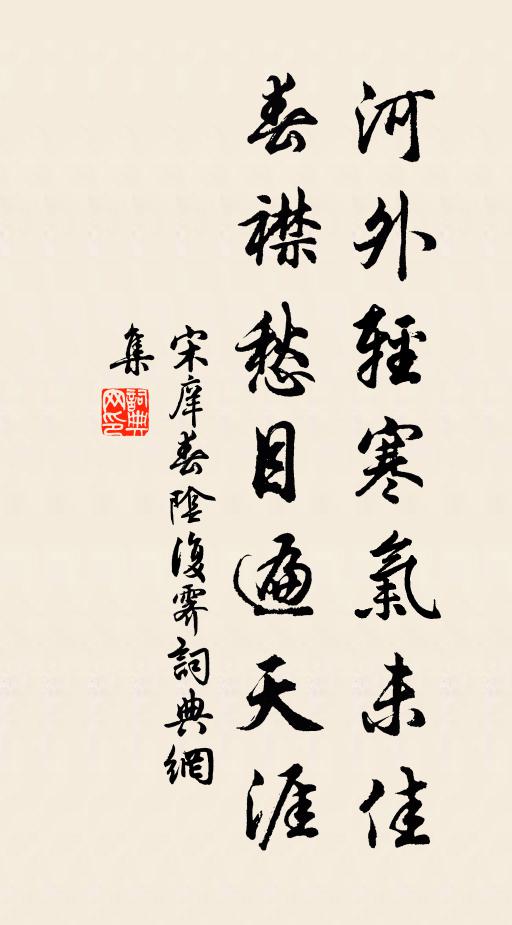 河外輕寒氣未佳
春襟愁目遍天涯
宋庠春陰復霽詞典網
集
詞典網印